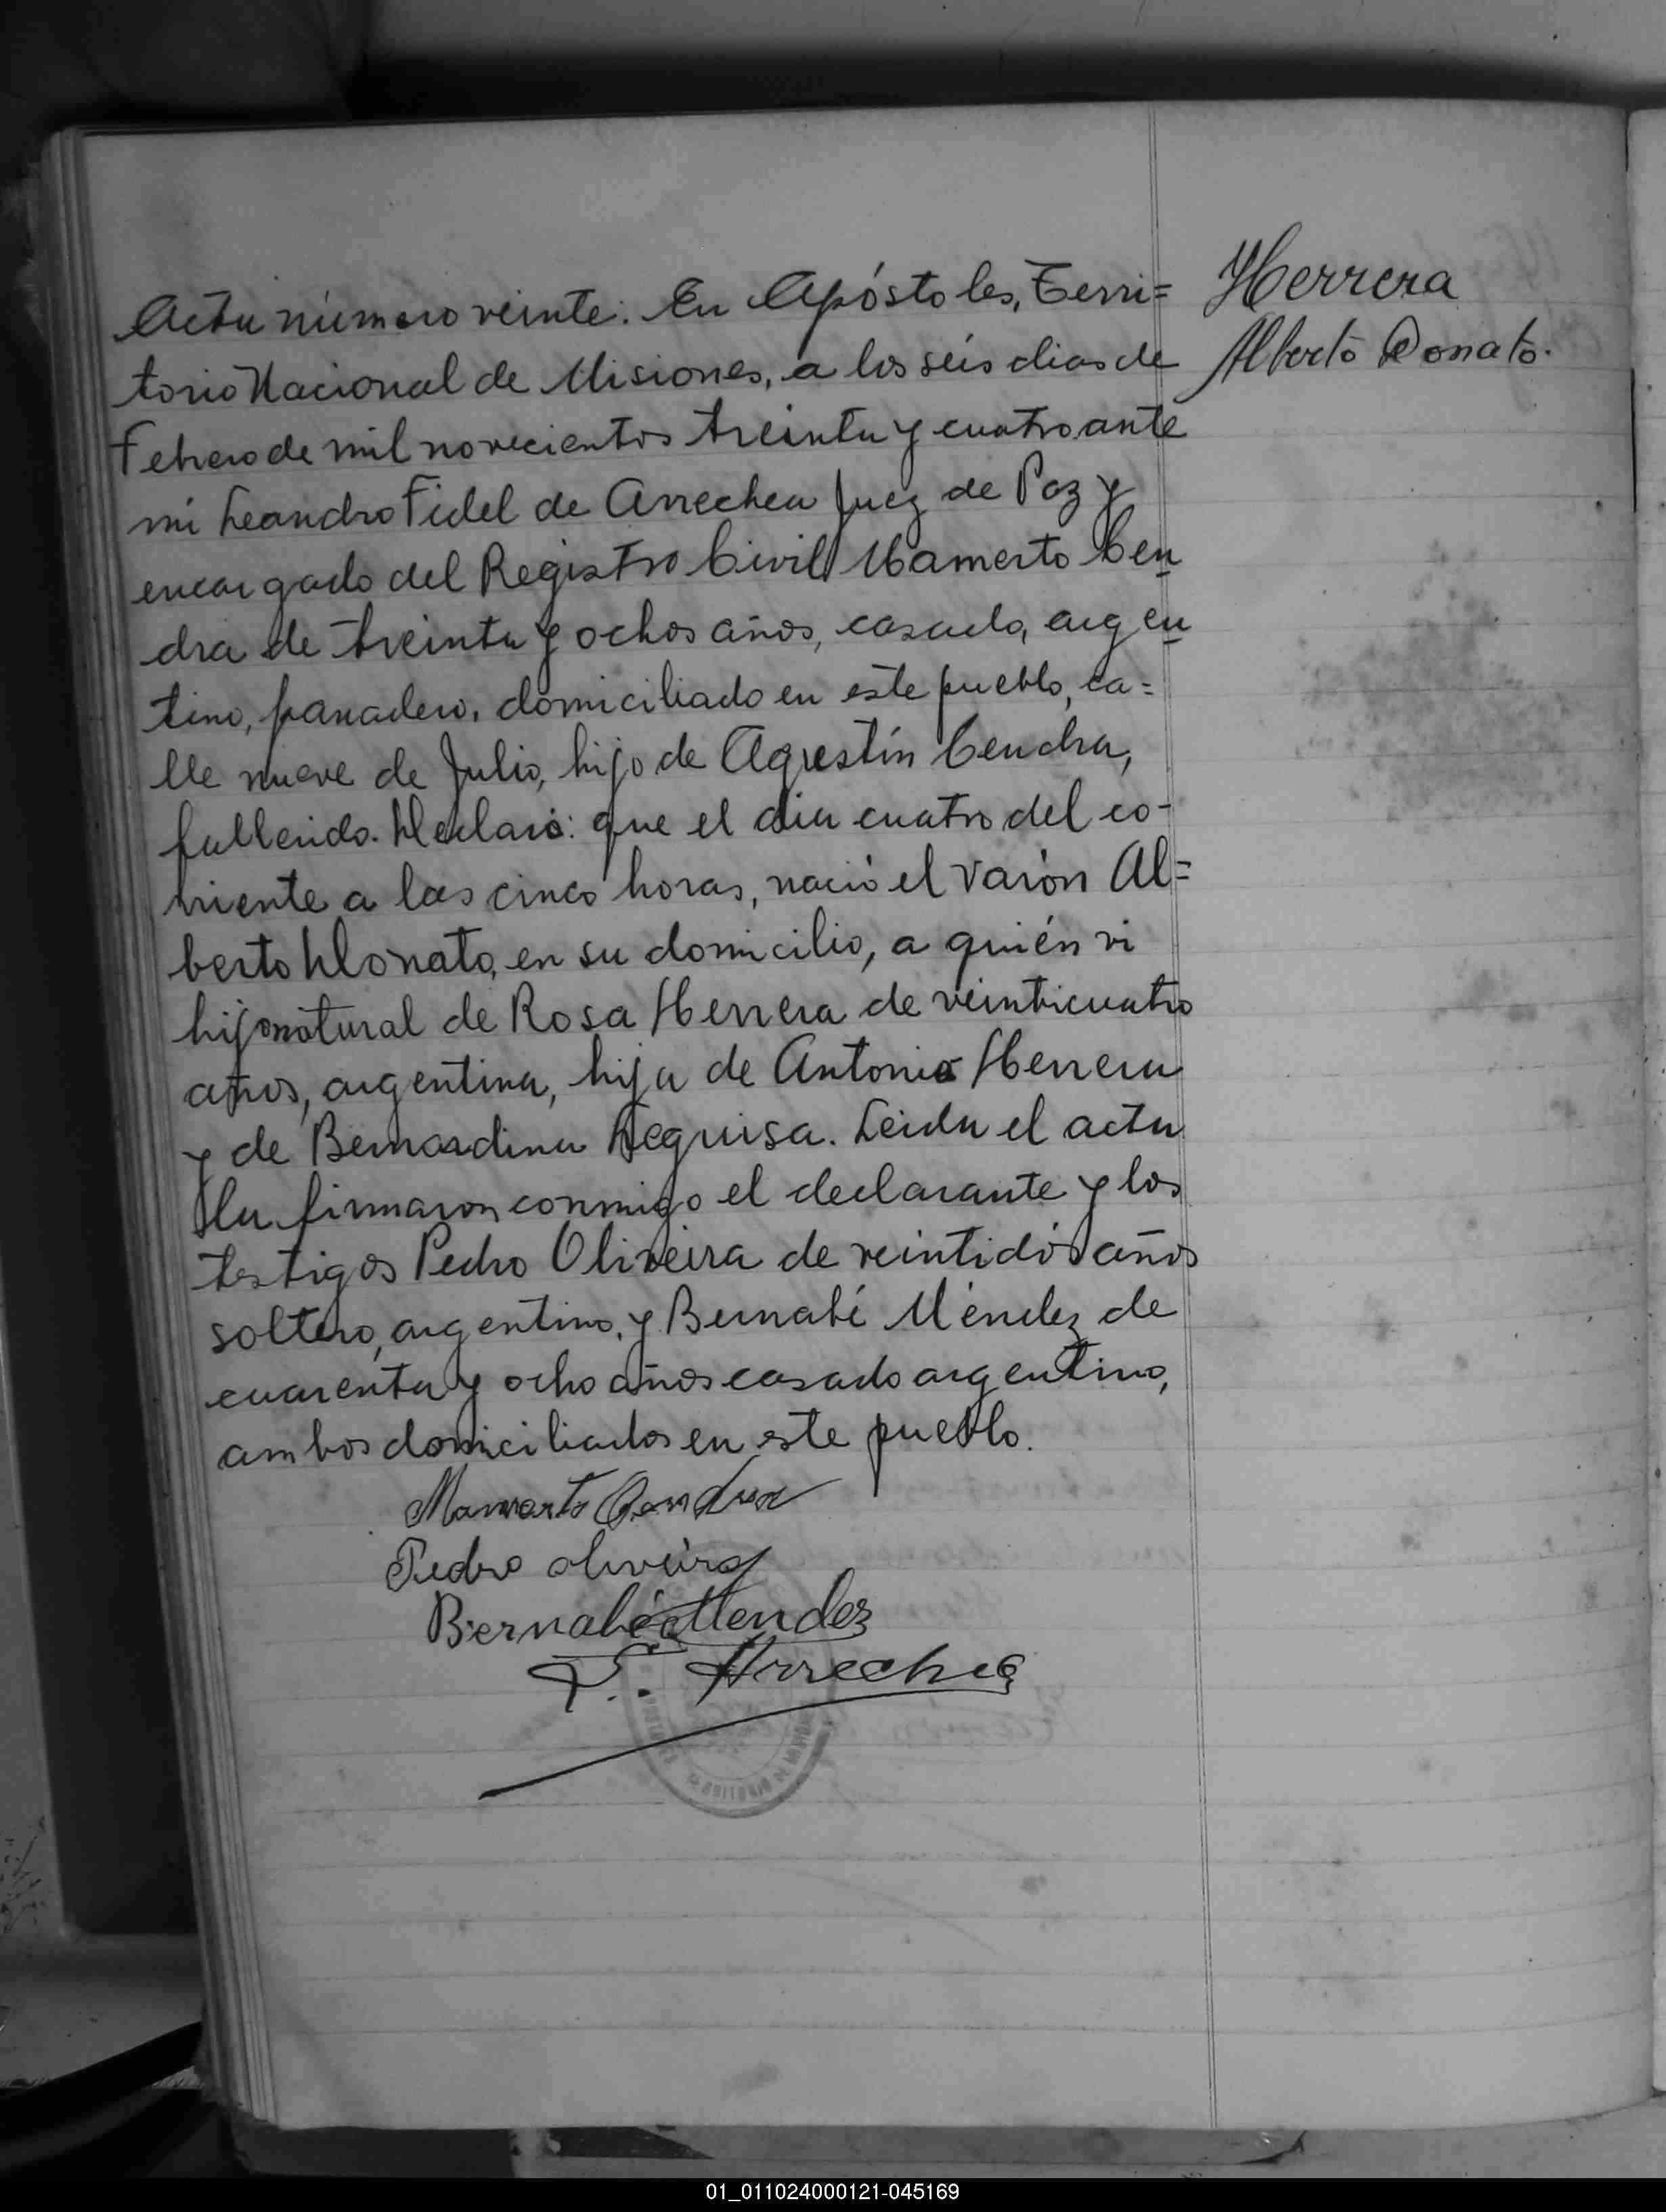 Acta número veinte. En Apóstoles, Terri=
torio Nacional de Misiones, a los seis dias de
Febrero de mil novecientos treinta y cuatro ante
mi Leandro Fidel de Arrechea Juez de Paz y
encargado del Registro Civil Mamerto Cen
dra de treinta y ochos años, casado, argen
tino, panadero, domiciliado en este pueblo, ca=
lle nueve de Julio, hijo de Agustín Cendra,
fallecido. Declaró: que el dia cuatro del co-
rriente a las cinco horas, nació el varón Al=
berto Donato, en su domicilio, a quién vi
hijo natural de Rosa Herrera de veinticuatro
años, argentina, hija de Antonio Herrera
y de Bernardina Leguisa. Leida el acta
la firmaron conmigo el declarante y los
testigos Pedro Oliveira de veintidós años
soltero, argentino, y Bernabé Méndez de
cuarenta y ocho años casado argentino,
ambos domiciliados en este pueblo.
Mamerto Cendra
Pedro oliveira
Bernabé Mendez
Arrechea
Herrera
Alberto Donato.
01_011024000121-045169